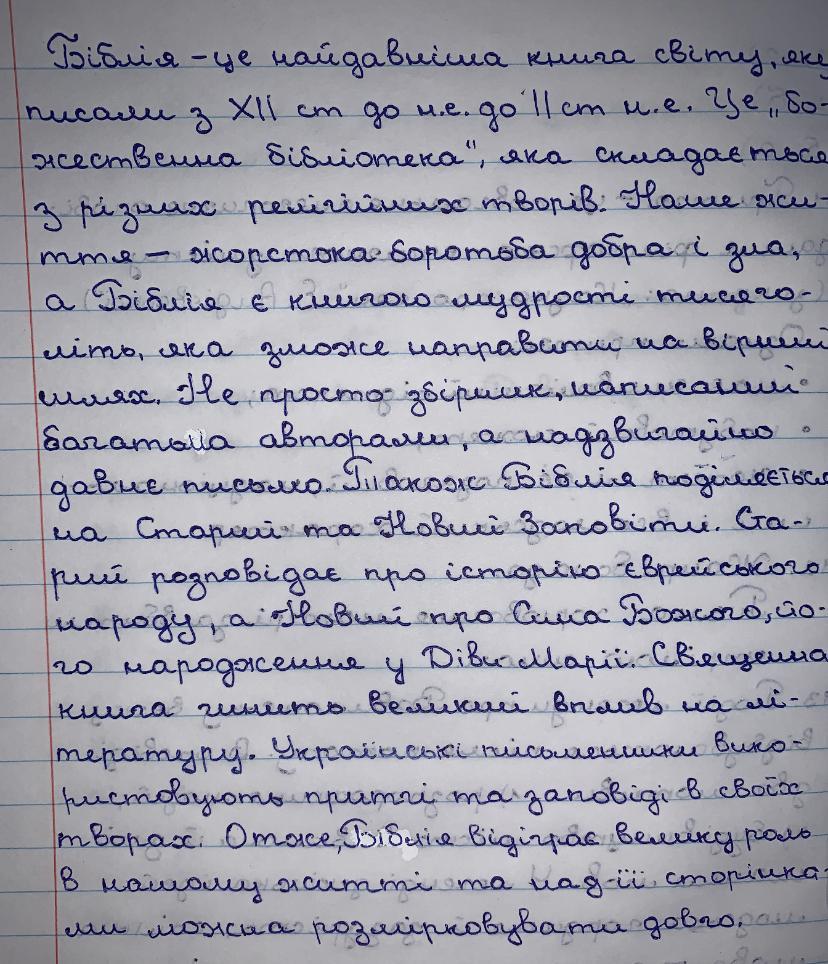 Біблія – це найдавніша книга світу, яку
писали з XII ст до н.е. до II ст н.е. Це „бо-
жественна бібліотека", яка складається
з різних релігійних творів. Наше жи-
ття – жорстока боротьба добра і зла,
а Біблія є книгою мудрості тисячо-
літь, яка зможе направити на вірний
шлях. Не просто збірник, написаний
багатьма авторами, а надзвичайно
давнє письмо. Також Біблія поділяється
на Старий та Новий Заповіти. Ста-
рий розповідає про історію єврейського
народу, а Новий про Сина Божого, йо-
го народження у Діви Марії. Священна
книга чинить великий вплив на лі-
тературу. Українські письменники вико-
ристовують притчі та заповіді в своїх
творах. Отже, Біблія відіграє велику роль
в нашому житті та над її сторінка-
ми можна розмірковувати довго.